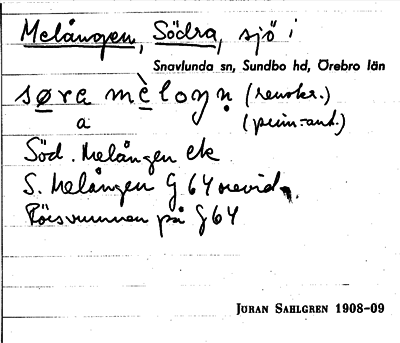 Melången, Södra, sjö i
Snavlunda sn, Sundbo hd, Örebro län
sørа mèloŋṇ (renskr.)
a (prim.-ant.)
Söd. Melången ek
S. Melången G 64 orevid.
Rösvummen på G 64
JÖRAN SAHLGREN 1908-09